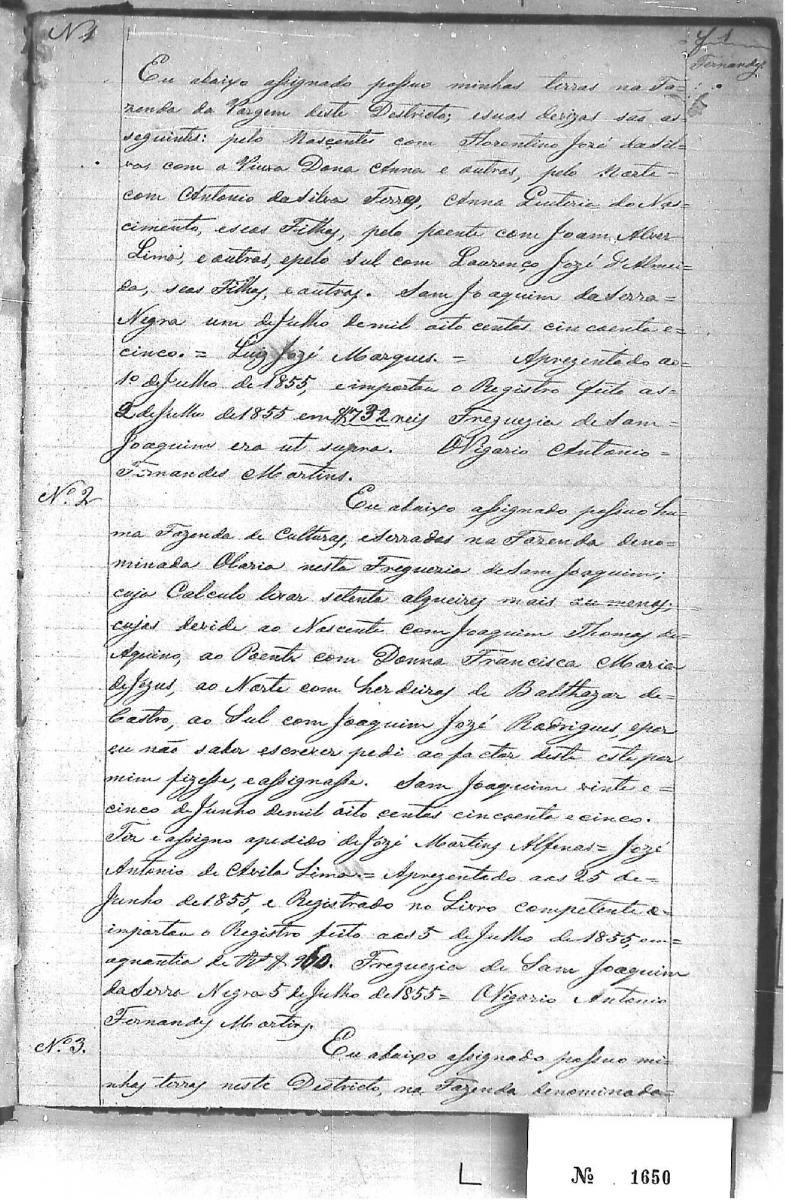 Nº 1
f 1
Fernandes
Eu abaixo assignado possuo minhas terras na Fa=
zenda da Vargem deste Destricto; e suas devizas são as=
seguintes: pelo Nascente com Florentino Jozé da Sil=
va com a Viuva Dona Anna e outros, pelo Norte=
com Antonio da Silva Ferrs, Anna Luteria do Nas=
cimento, e seos Filhos, pelo poente com Joam Alves
Lima, e outros, e pelo Sul com Lourenço Jozé d'Almei=
da, seos Filhos, e outros. Sam Joaquim da Serra=
Negra um de Julho de mil oito centos cincoenta e=
cinco. = Luiz Jozé Marques. = Aprezentado ao=
1º de Julho de 1855, e importou o Registro feito as=
2 de Julho de 1855 em #732 reis Freguezia de Sam=
Joaquim era ut supra. O Vigario Antonio=
Fernandes Martins.
Nº 2
Eu abaixo assignado possuo hu=
ma Fazenda de Culturas, e serrados na Fazenda deno=
minada Olaria nesta Freguezia de Sam Joaquim;
cujo Calculo levar setenta alqueires mais ou menos;
cujas devide ao Nascente com Joaquim Thomas de=
Aquino, ao Poente com Donna Francisca Maria
de Jezus, ao Norte com herdeiros de Balthazar de=
Castro, ao Sul com Joaquim Jozé Rodrigues, e por
eu não saber escrever pedi ao factor deste este por
mim fizesse, e assignasse. Sam Joaquim vinte e=
cinco de Junho de mil oito centos cincoenta e cinco.
Fiz e assigno apedido de Jozé Martins Alfenas= Jozé
Antonio de Avila Lima.= Aprezentado aos 25 de=
Junho de 1855, e Registrado no Livro competente e=
importou o Registro feito aos 5 de Julho de 1855 em=
aquantia de # 960. Freguezia de Sam Joaquim
da Serra Negra 5 de Julho de 1855= O Vigario Antonio
Fernandes Martins.
Nº 3.
Eu abaixo assignado possuo mi=
nhas terras neste Destricto, na Fazenda denominada=
L
Nº 1650